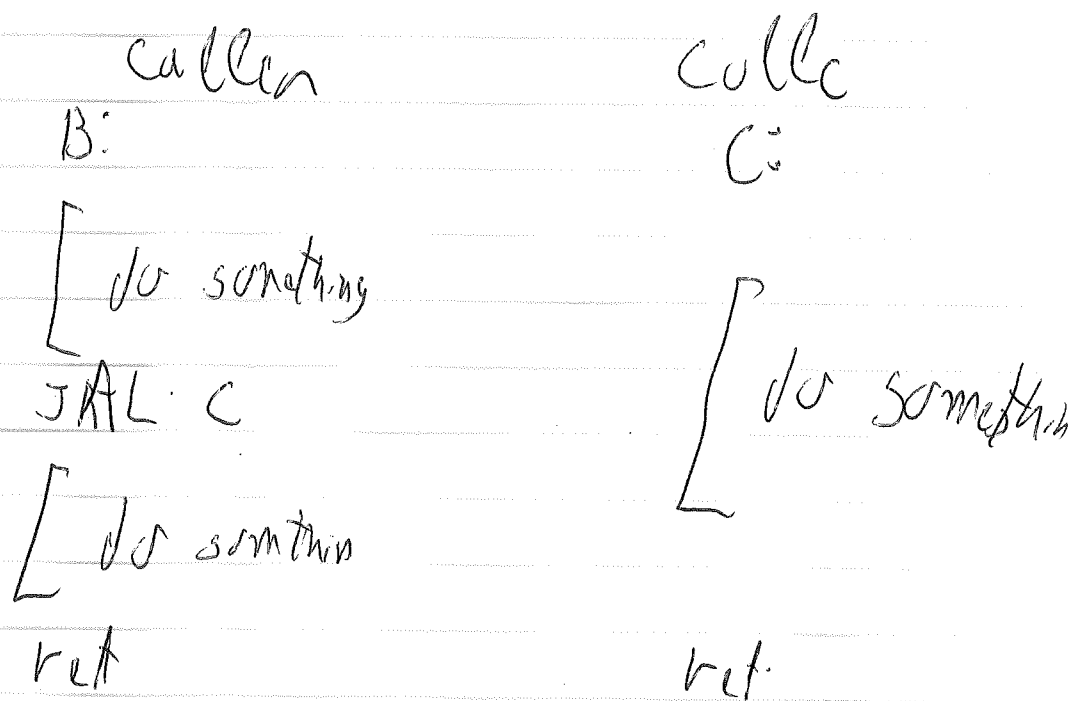 Caller
B:
do something
JAL C
do somthin
ret
Calle
C:
do somethin
ret.